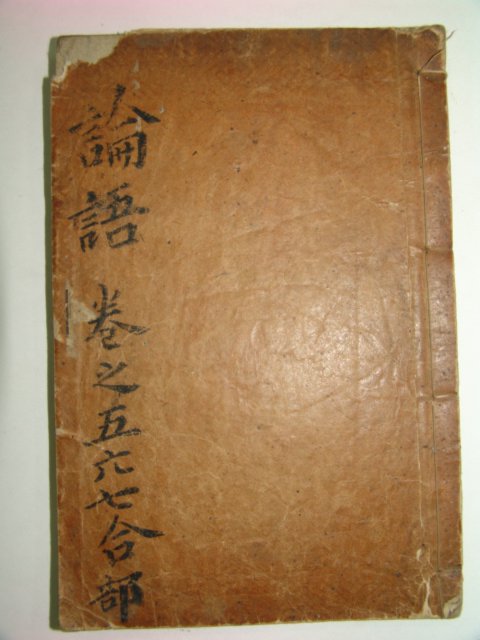 論語 卷之五六七合部